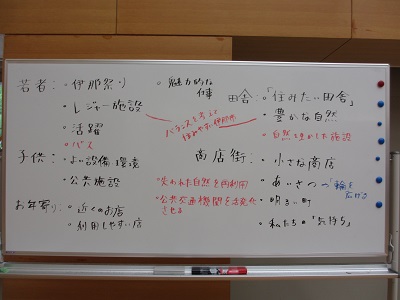 若者：・伊那祭り
・レジャー施設
・活躍
・バス
子供：・よい設備・環境
・公共施設
お年寄り：・近くのお店
・利用しやすい店
・魅力的な
仕事
バランスをとって
住みやすい伊那市
田舎：・「住みたい田舎」
・豊かな自然
・自然を生かした施設
商店街：・小さな商店
・あいさつの「輪を
広げる
・明るい町
・私たちの「気持ち」
・失われた自然を再利用
・公共交通機関を活発化
させる